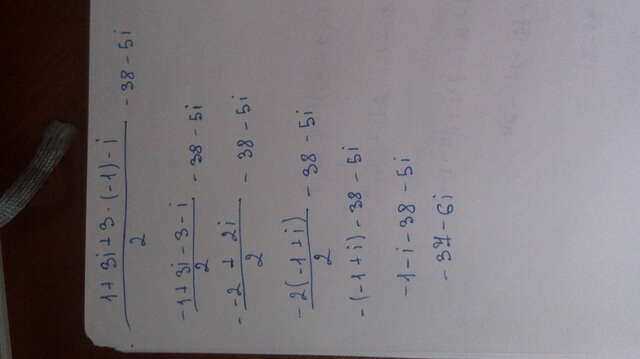 \frac{1+3i+3·(-1)-i}{2} - 38 - 5i
-\frac{1+3i-3-i}{2} - 38 - 5i
-\frac{-2+2i}{2} - 38 - 5i
-\frac{2(-1+i)}{2} - 38 - 5i
-(-1+i) - 38 - 5i
-1 - i - 38 - 5i
-37 - 6i